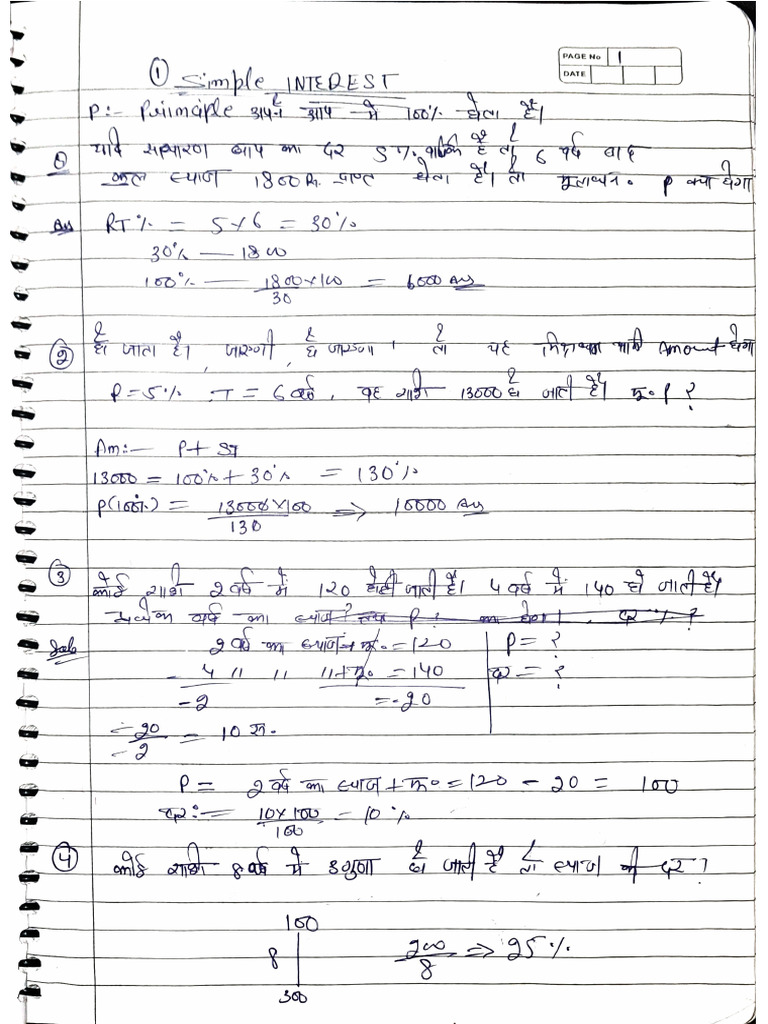 PAGE No 1
DATE
① Simple INTEREST
P:- Priimciple अपने आप में 100% होता है।
Q यदि साधारण ब्याज का दर 5% वार्षिक है तो 6 वर्ष बाद
कुल ब्याज 1800 Rs. प्राप्त होता है। तो मूलधन. P क्या होगा
Ans RT% = 5×6 = 30%
30% — 1800
100% — 1800×100 = 6000 Ans
30
② हो जाता है। जाएगी, हो जाएगा, तो यह मिश्रधन यानि Amount होगा
P=5%. T = 6 वर्ष, वह राशि 13000 हो जाती है। मू० P ?
Am:- P+
13000 = 100% + 30% = 130%
P(100%) = 13000×100 ⇒ 10000 Ans
130
③ कोई राशी 2 वर्ष में 120 हो जाती है। 4 वर्ष में 140 हो जाती है।
प्रत्येक वर्ष का ब्याज?
2 वर्ष का ब्याज + मू० = 120 P = ?
- 4 " " "+मू० = 140 दर = ?
-2 = -20
-20 = 10 रू.
-2
P = 2 वर्ष का ब्याज + मू० = 120 - 20 = 100
दर:- 10×100 = 10%
100
④ कोई राशी 8 वर्ष में 3 गुना हो जाती है तो ब्याज की दर?
100
8 200 ⇒ 25%
8
300